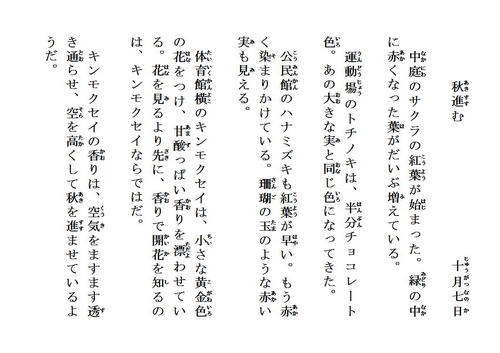 秋進む　十月七日
中庭のサクラの紅葉が始まった。緑の中
に赤くなった葉がだいぶ増えている。
運動場のトチノキは、半分チョコレート
色。あの大きな実と同じ色になってきた。
公民館のハナミズキも紅葉が早い。もう赤
く染まりかけている。珊瑚の玉のような赤い
実も見える。
体育館横のキンモクセイは、小さな黄金色
の花をつけ、甘酸っぱい香りを漂わせてい
る。花を見るより先に、香りで開花を知るの
は、キンモクセイならではだ。
キンモクセイの香りは、空気をますます透
き通らせ、空を高くして秋を進ませているよ
うだ。